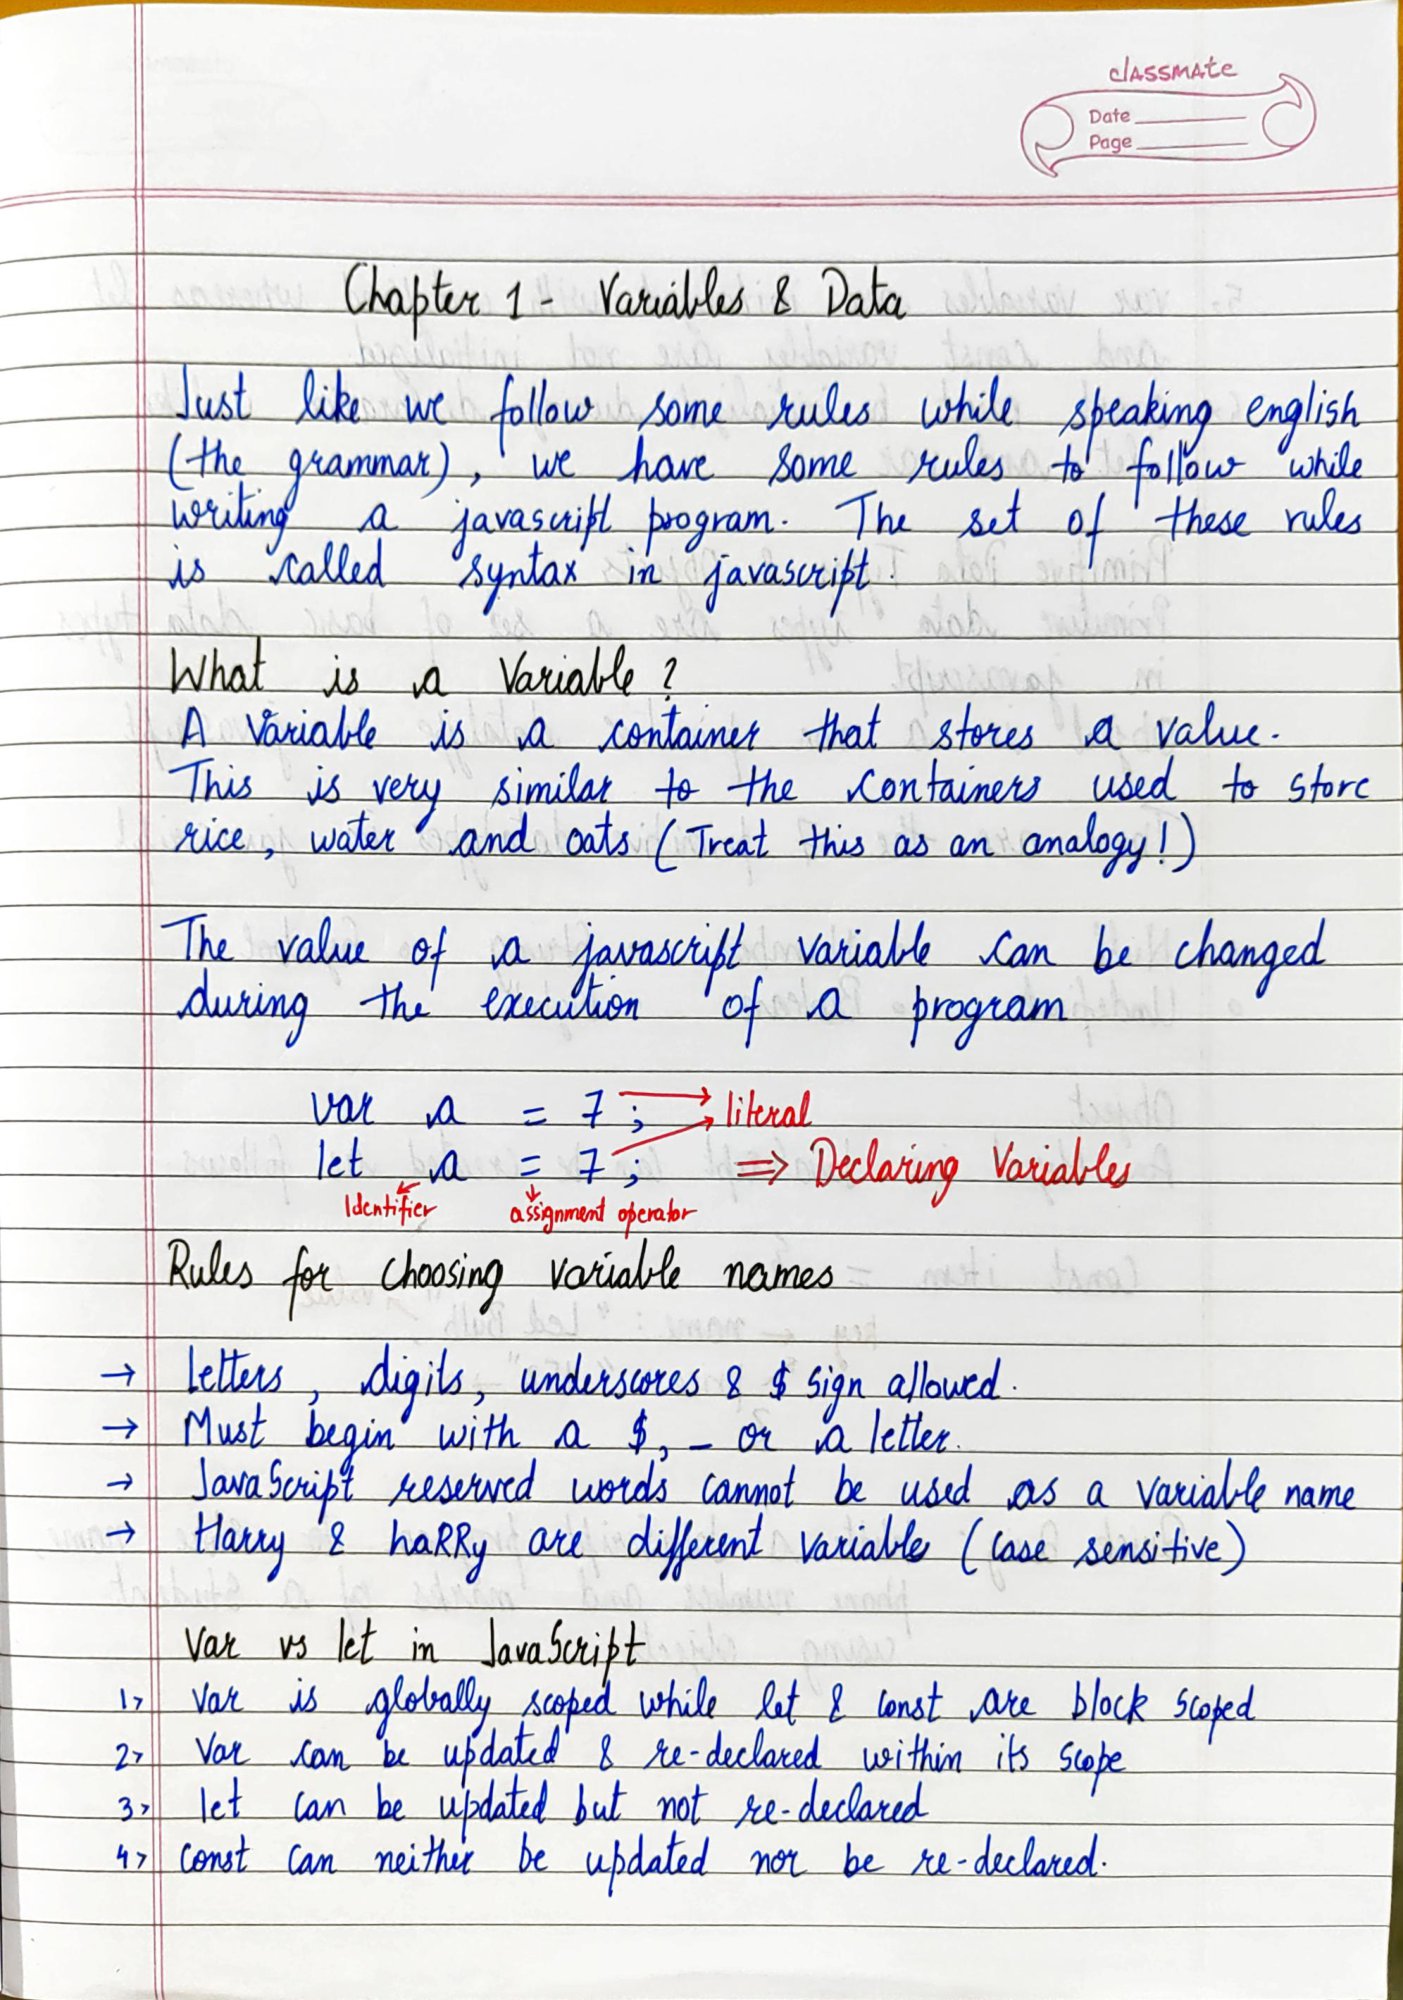 classmate
Date
Page
Chapter 1 - Variables & Data
Just like we follow some rules while speaking english
(the grammar), we have some rules to follow while
writing a javascript program. The set of these rules
is called syntax in javascript.
What is a Variable?
A Variable is a container that stores a value.
This is very similar to the containers used to store
rice, water and oats (Treat this as an analogy!)
The value of a javascript variable can be changed
during the execution of a program
var a = 7; → literal
let a = 7; ⇒ Declaring Variables
Identifier assignment operator
Rules for choosing variable names
→ letters, digits, underscores & $ sign allowed.
→ Must begin with a $, _ or a letter.
→ JavaScript reserved words cannot be used as a variable name
→ Harry & haRRy are different variables (case sensitive)
Var vs let in JavaScript
1> Var is globally scoped while let & const are block scoped
2> Var can be updated & re-declared within its scope
3> let can be updated but not re-declared
4> const can neither be updated nor be re-declared.